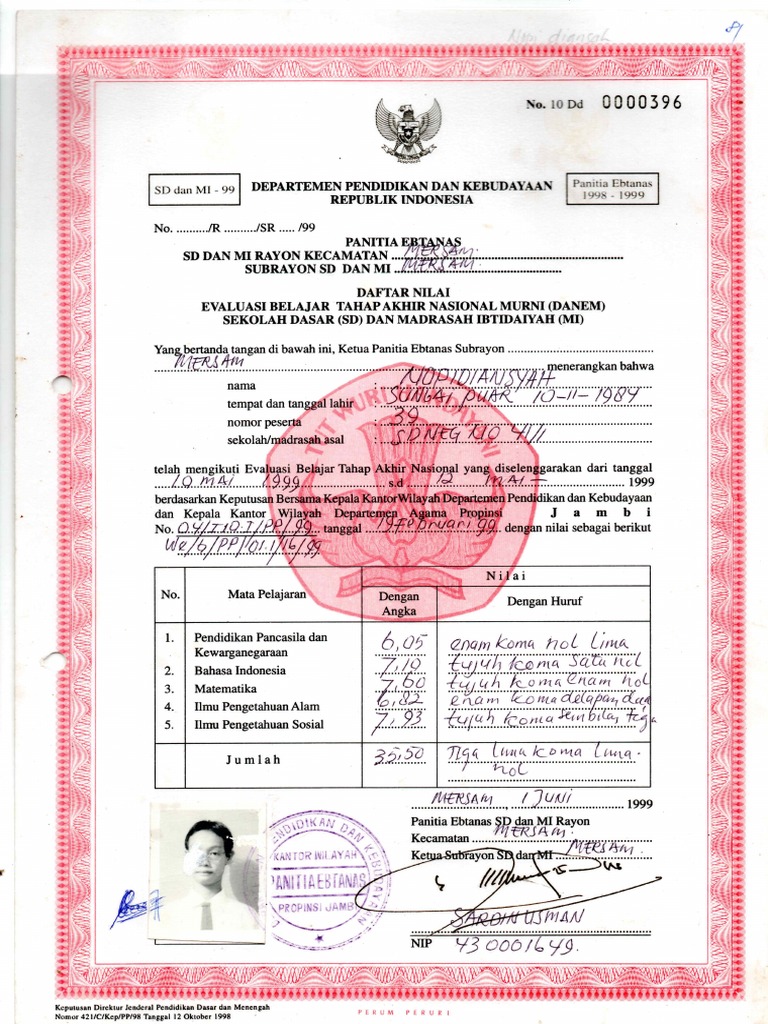 Nopi diansah
No. 10 Dd 0000396
SD dan MI - 99
DEPARTEMEN PENDIDIKAN DAN KEBUDAYAAN
REPUBLIK INDONESIA
Panitia Ebtanas
1998 - 1999
No. ........../R ........../SR ..... /99
PANITIA EBTANAS
SD DAN MI RAYON KECAMATAN MERSAM.
SUBRAYON SD DAN MI MERSAM.
DAFTAR NILAI
EVALUASI BELAJAR TAHAP AKHIR NASIONAL MURNI (DANEM)
SEKOLAH DASAR (SD) DAN MADRASAH IBTIDAIYAH (MI)
Yang bertanda tangan di bawah ini, Ketua Panitia Ebtanas Subrayon
MERSAM menerangkan bahwa
nama : NOPIDIANSYAH
tempat dan tanggal lahir : SUNGAI PUAR 10-11-1984
nomor peserta : 39
sekolah/madrasah asal : SDNEG NO 41/1
TUT WURI HANDAYANI
telah mengikuti Evaluasi Belajar Tahap Akhir Nasional yang diselenggarakan dari tanggal
10 MAI 1999 s.d 12 MAI - 1999
berdasarkan Keputusan Bersama Kepala Kantor Wilayah Departemen Pendidikan dan Kebudayaan
dan Kepala Kantor Wilayah Departemen Agama Propinsi Jambi
No. tanggal 19 Februari 99 dengan nilai sebagai berikut
No. Mata Pelajaran Nilai
Dengan Angka Dengan Huruf
1. Pendidikan Pancasila dan
Kewarganegaraan 6,05 enam koma nol lima
2. Bahasa Indonesia 7,10 tujuh koma satu nol
3. Matematika 7,60 tujuh koma enam nol
4. Ilmu Pengetahuan Alam 6,82 enam koma delapan dua
5. Ilmu Pengetahuan Sosial 7,93 tujuh koma sembilan tiga
Jumlah 35,50 Tiga lima koma lima.
nol
MERSAM, 1 JUNI 1999
Panitia Ebtanas SD dan MI Rayon
Kecamatan MERSAM.
Ketua Subrayon SD dan MI MERSAM.
PENDIDIKAN DAN KEBUDAYAAN
KANTOR WILAYAH
PANITIA EBTANAS
PROPINSI JAMBI
SARDIN USMAN
NIP 430001649.
Keputusan Direktur Jenderal Pendidikan Dasar dan Menengah
Nomor 421/C/Kep/PP/98 Tanggal 12 Oktober 1998
PERUM PERURI